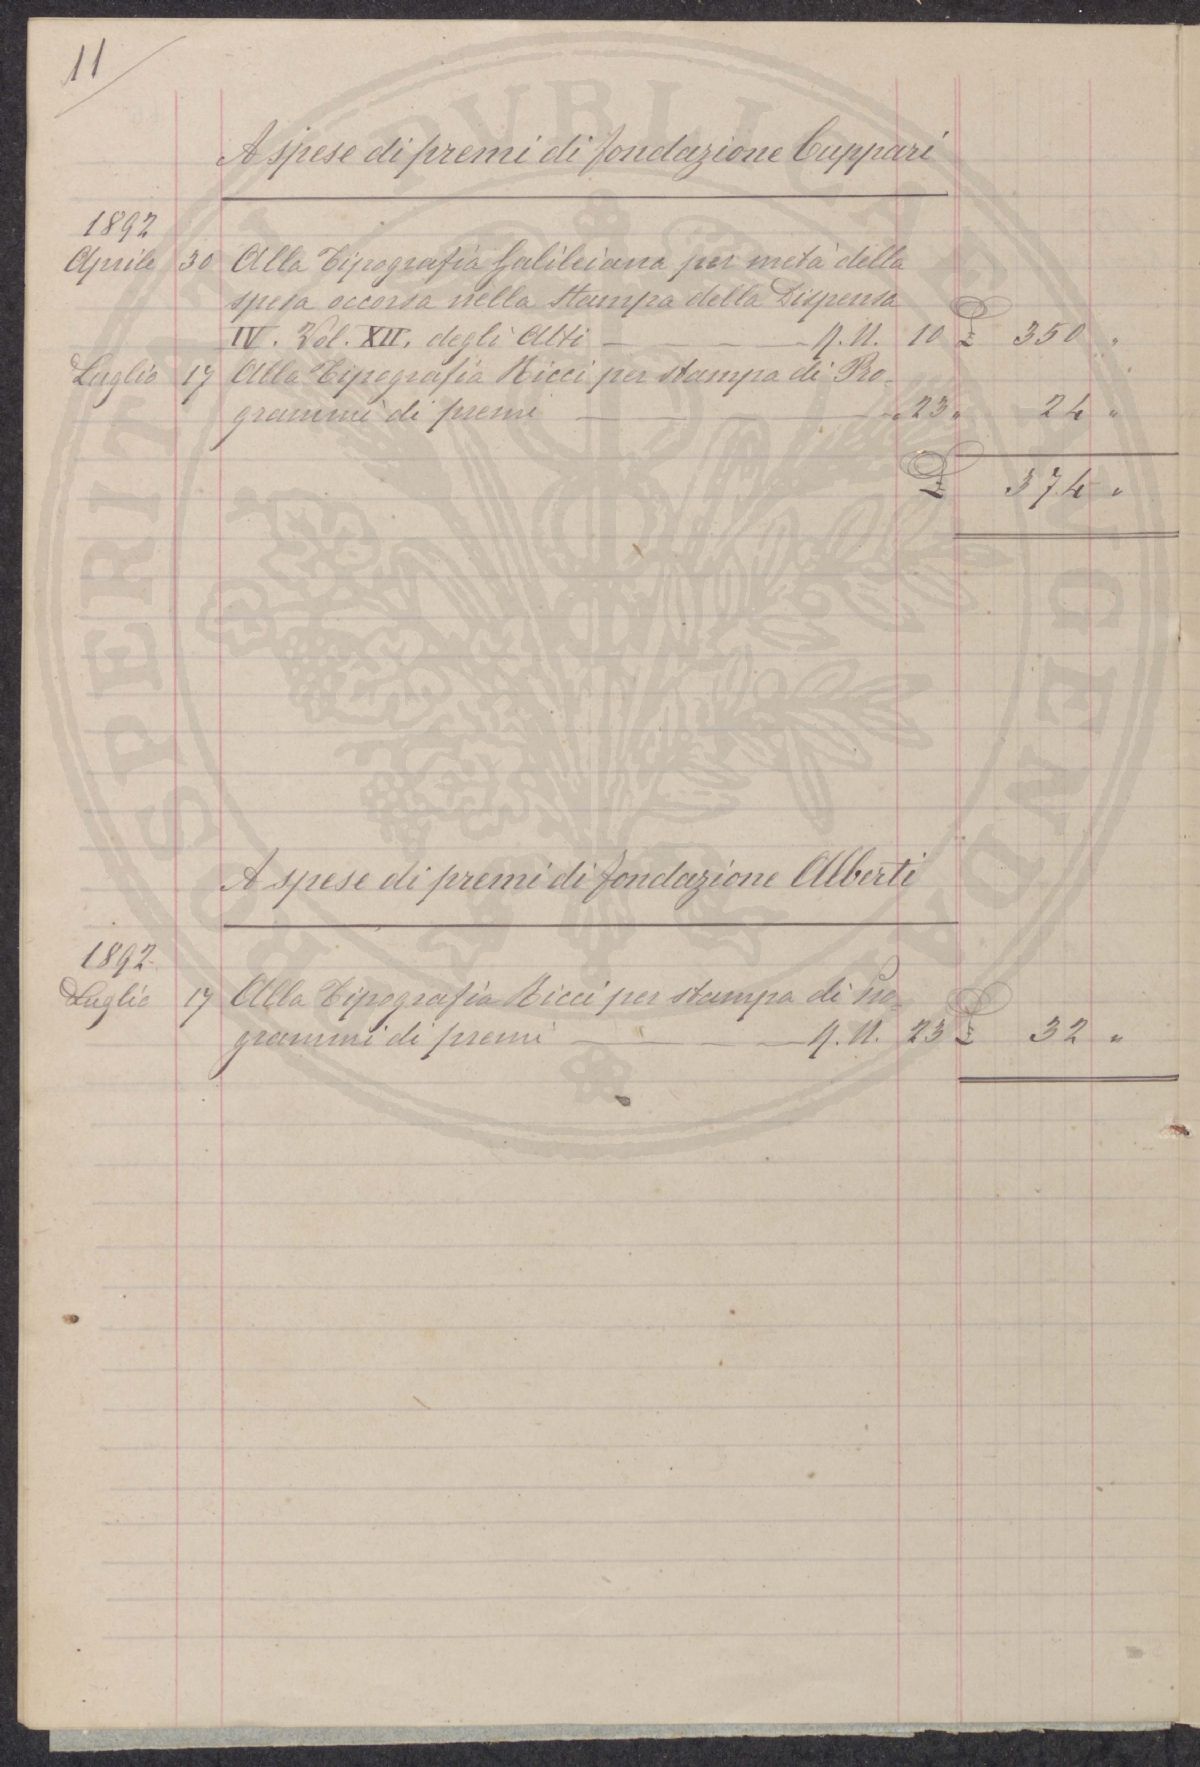 11
A spese di premi di fondazione Cuppari
1892
Aprile 30 Alla Tipografia Galileiana per metà della
spesa occorsa nella stampa della Dispensa
IV. Vol. XII. degli Atti — — — 10 £ 350 "
Luglio 17 Alla Tipografia Ricci per stampa di Pro-
grammi di premi — — — " 23 " 24 "
£ 374 "
A spese di premi di fondazione Alberti
1892
Luglio 17 Alla Tipografia Ricci per stampa di Pro-
grammi di premi — — — 23 £ 32 "
PROSPERITATI PVBLICAE AVGENDAE